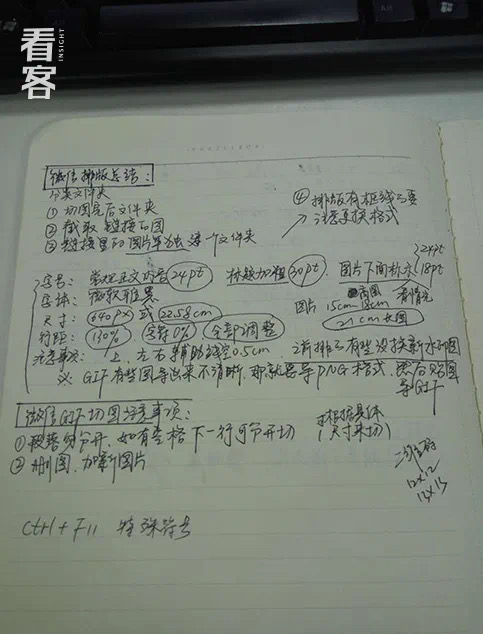 看客
INSIGHT
微信排版总结：
分类文件夹
① 切图完后文件夹
② 截取链接的图
③ 链接里的图片单独建一个文件夹
④ 排版有框线
注意 换格式
字号： 常规正文内容 24pt 标题加粗 30pt 图片下面标注 24pt
18pt
字体： 微软雅黑 看情况
尺寸： 640px 或 22.58cm 图片 15cm 18cm
21cm 长图
行距： 130% 字符0% 全部P调整
注意事项： 上、左右 辅助线空0.5cm
GIF有些图导出来不清晰，那就是导PNG格式，然后贴图
导GIF
微信GIF切图注意事项：
① 根据 分开，如有空格下一行可分开切 根据具体
尺寸来切
② 删图、加新图片
二维码
12×12
13×13
Ctrl + F11 特殊符号